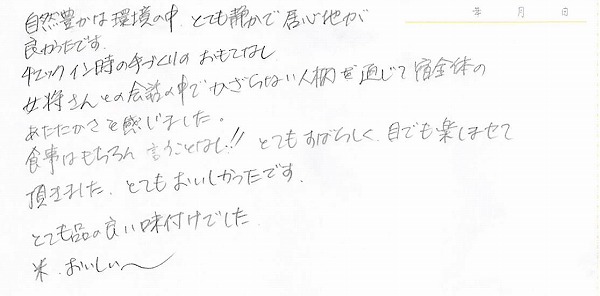 自然豊かな環境の中、とても静かで居心地が
良かったです。
チェックイン時の手づくりのおもてなし
女将さんとの会話の中でかざらない人柄を通じて宿全体の
あたたかさを感じました。
食事はもちろん言うことなし!! とてもすばらしく、目でも楽しませて
頂きました、とてもおいしかったです。
とても品の良い味付けでした
米、おいしい〜
年 月 日